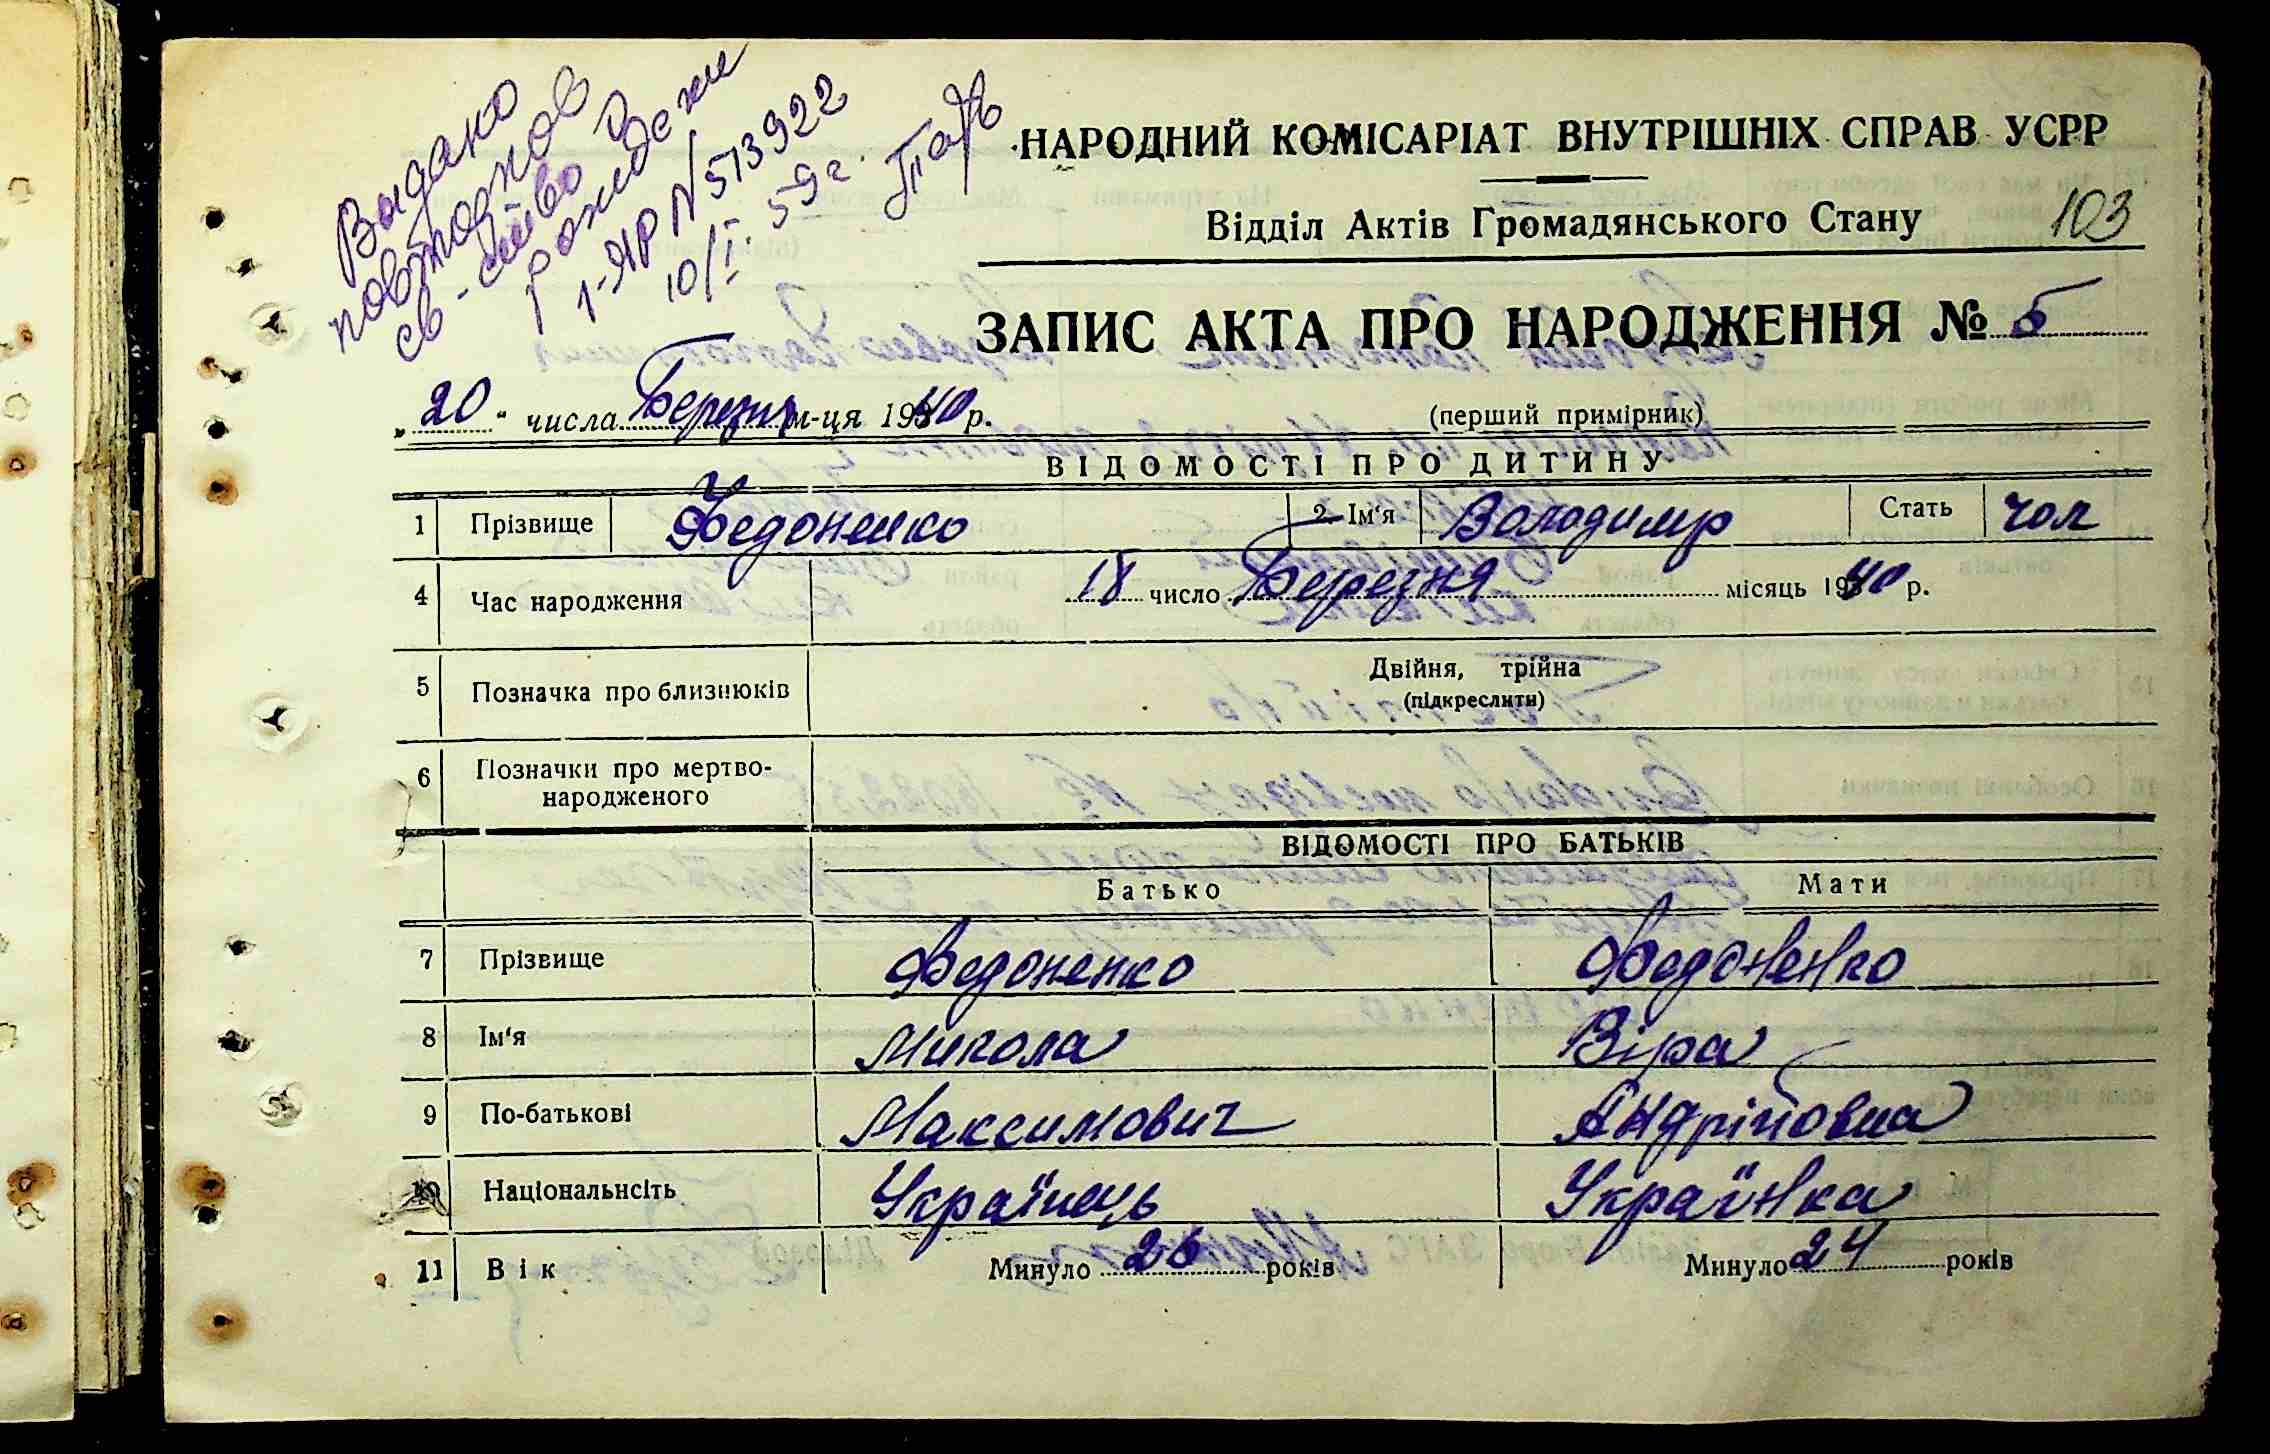 Выдано
повторное
св-ство о
рождении
1-ЯР N 513922
10/I. 59 г.
НАРОДНИЙ КОМІСАРІАТ ВНУТРІШНІХ СПРАВ УСРР
Відділ Актів Громадянського Стану 103
ЗАПИС АКТА ПРО НАРОДЖЕННЯ № 5
„20" числа Березня м-ця 1940 р. (перший примірник)
ВІДОМОСТІ ПРО ДИТИНУ
1 Прізвище Федоненко 2 Ім'я Володимир Стать чол
4 Час народження 18 число Березня місяць 1940 р.
5 Позначка про близнюків Двійня, трійна
(підкреслити)
6 Позначки про мертво-
народженого
ВІДОМОСТІ ПРО БАТЬКІВ
Батько Мати
7 Прізвище Федоненко Федоненко
8 Ім'я Микола Віра
9 По-батькові Максимович Андріївна
10 Національнсіть Українець Українка
11 Вік Минуло 26 років Минуло 24 років